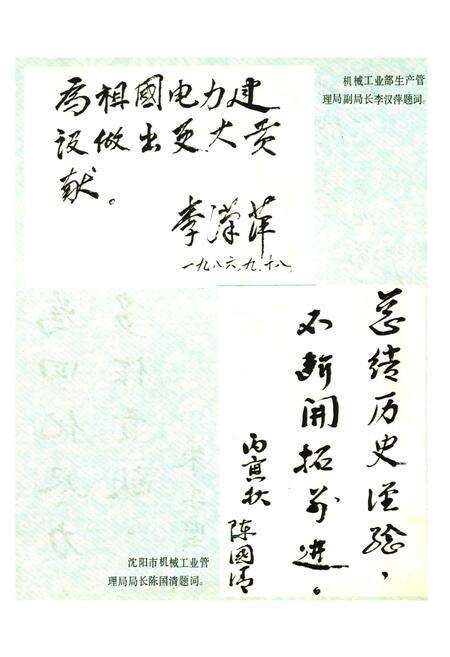 为祖國电力建
设做出更大贡
献。
李汉萍
一九八六.九.十八.
机械工业部生产管
理局副局长李汉萍题词。
总结历史经验，
不断开拓前进。
丙寅秋
陈國清
沈阳市机械工业管
理局局长陈国清题词。